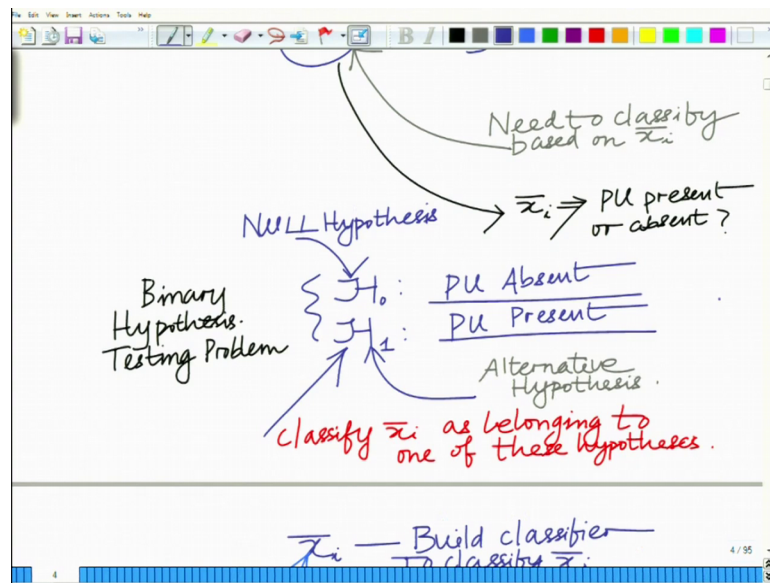 File Edit View Insert Actions Tools Help
B I
Need to classify
based on x̄ᵢ
x̄ᵢ ⇒ PU present
or absent?
NULL Hypothesis
Binary
Hypothesis.
Testing Problem
H₀: PU Absent
H₁: PU Present
Alternative
Hypothesis.
classify x̄ᵢ as belonging to
one of these hypotheses.
x̄ᵢ — Build classifier
To classify x̄ᵢ
4 / 95
4